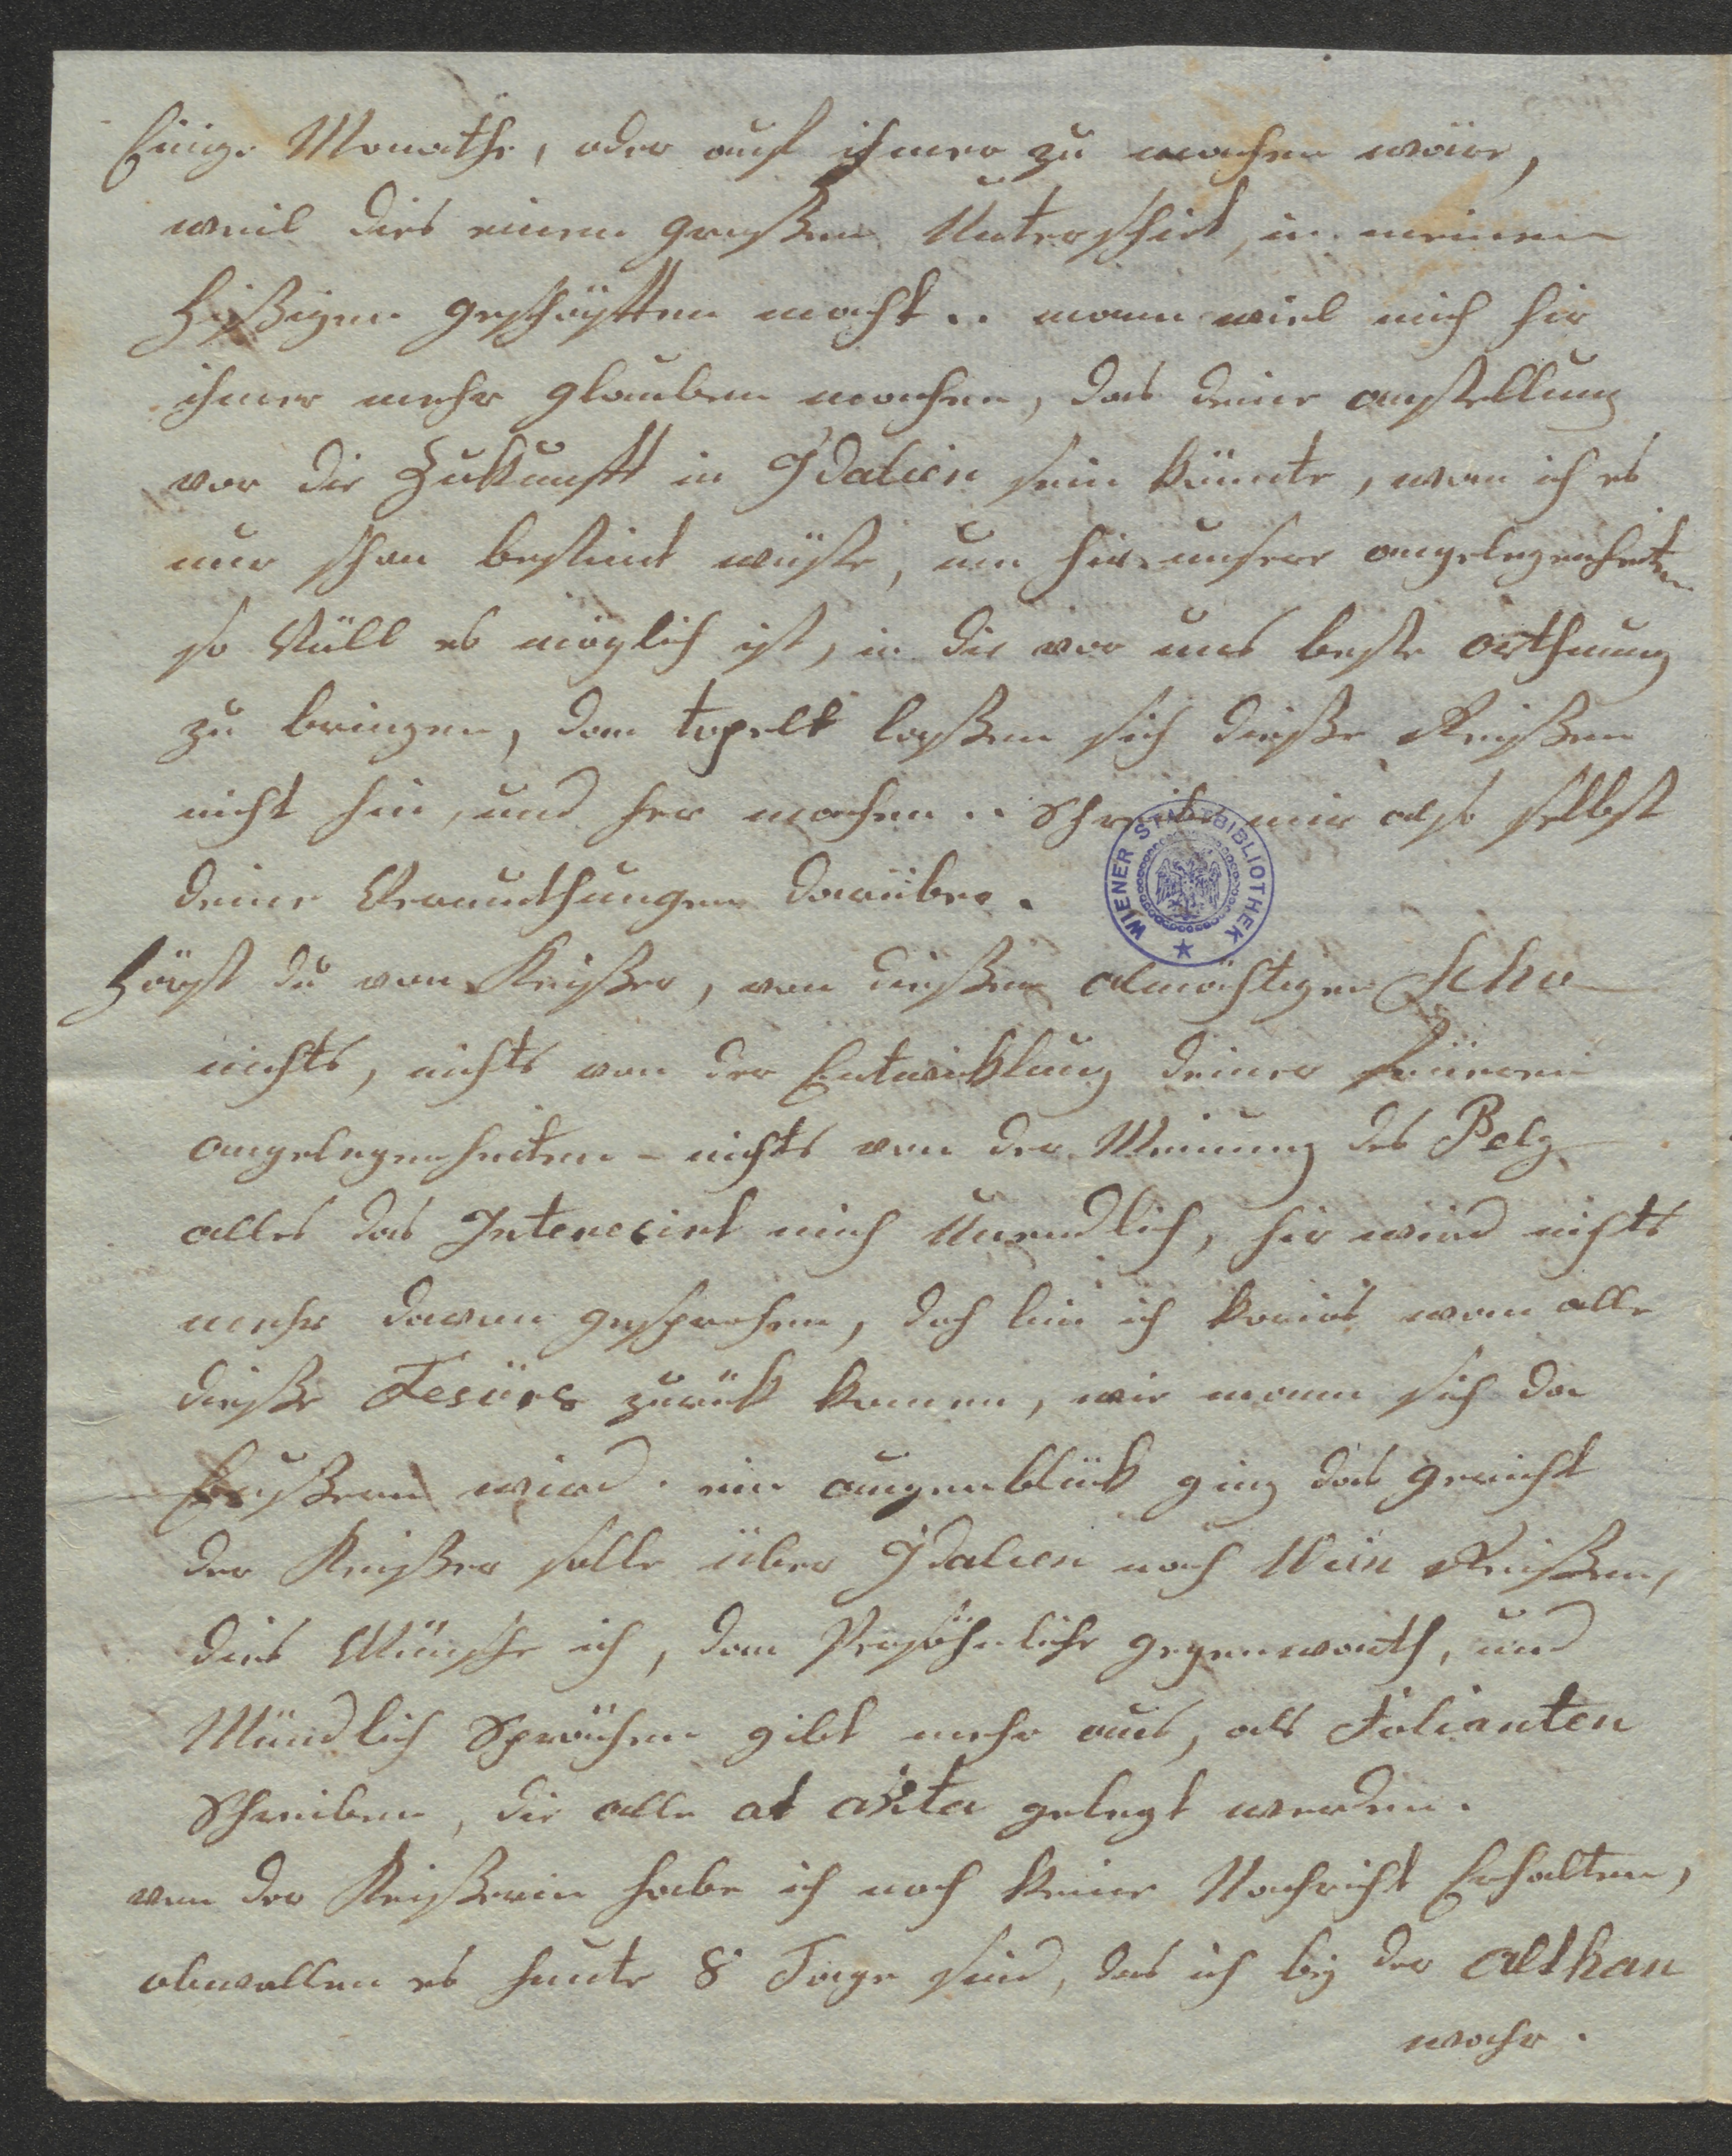 Einige Monathe, oder auf ihmer zu machen wäre,
weil dies einen großen Unterschiet, in meinen
hißigen geschäfften macht .. mann wiel mich hir
ihmer mehr glauben machen, das deine anstellung
vor die Zukunfft in Ydalien sein könnte, wan ich es
nur schon bestimt wüste, um hir unsere angelegenheiten
so Vüll es möglich ist, in die vor uns beste orthnung
zu bringen, dan topelt laßen sich dieße Reißen
nicht hin, und her machen .. Schreibe mir also selbst
deine Vermuthungen darüber.
WIENER STADTBIBLIOTHEK
Hörst du von Keißer, von dießen almächtigen
nichts, nichts von der Entwicklung deiner
angelegenheiten - nichts von der Meinung des Pelz
alles das Interesirt mich Unendlich, hir wird nichts
mehr davon gesprochen, doch bin ich wan alle
dieße zurük komen, wie mann sich da
Eußern wird. ein augenblük ging das gericht
der Keißer solle über Ydalien nach Wiin Reißen,
dies Wünsche ich, dan Persöhnliche gegenwarth, und
Mündlich Sprächen gibt mehr aus, als Folianten
Schreiben, die alle at akta gelegt werden.
von der Keißerin habe ich noch keine Nachricht Erhalten,
obwollen es heute 8 Tage sind, das ich bey der Althan
wahr.